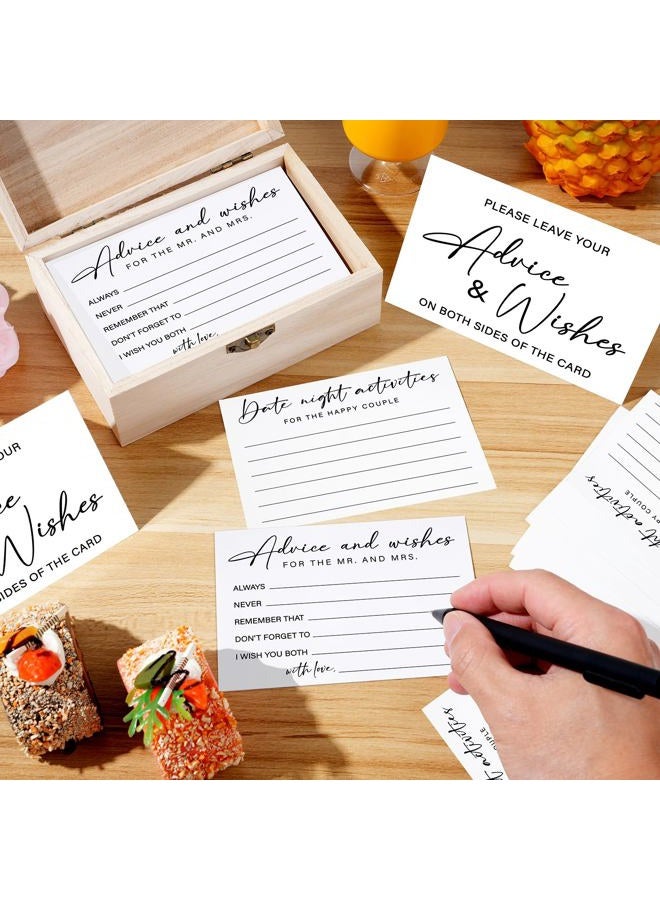 Advice and wishes
FOR THE MR. AND MRS.
ALWAYS
NEVER
REMEMBER THAT
DON'T FORGET TO
I WISH YOU BOTH
with love,
PLEASE LEAVE YOUR
Advice
& Wishes
ON BOTH SIDES OF THE CARD
Date night activities
FOR THE HAPPY COUPLE
OUR
Wishes
SIDES OF THE CARD
Advice and wishes
FOR THE MR. AND MRS.
ALWAYS
NEVER
REMEMBER THAT
DON'T FORGET TO
I WISH YOU BOTH
with love,
activities
COUPLE
activities
COUPLE